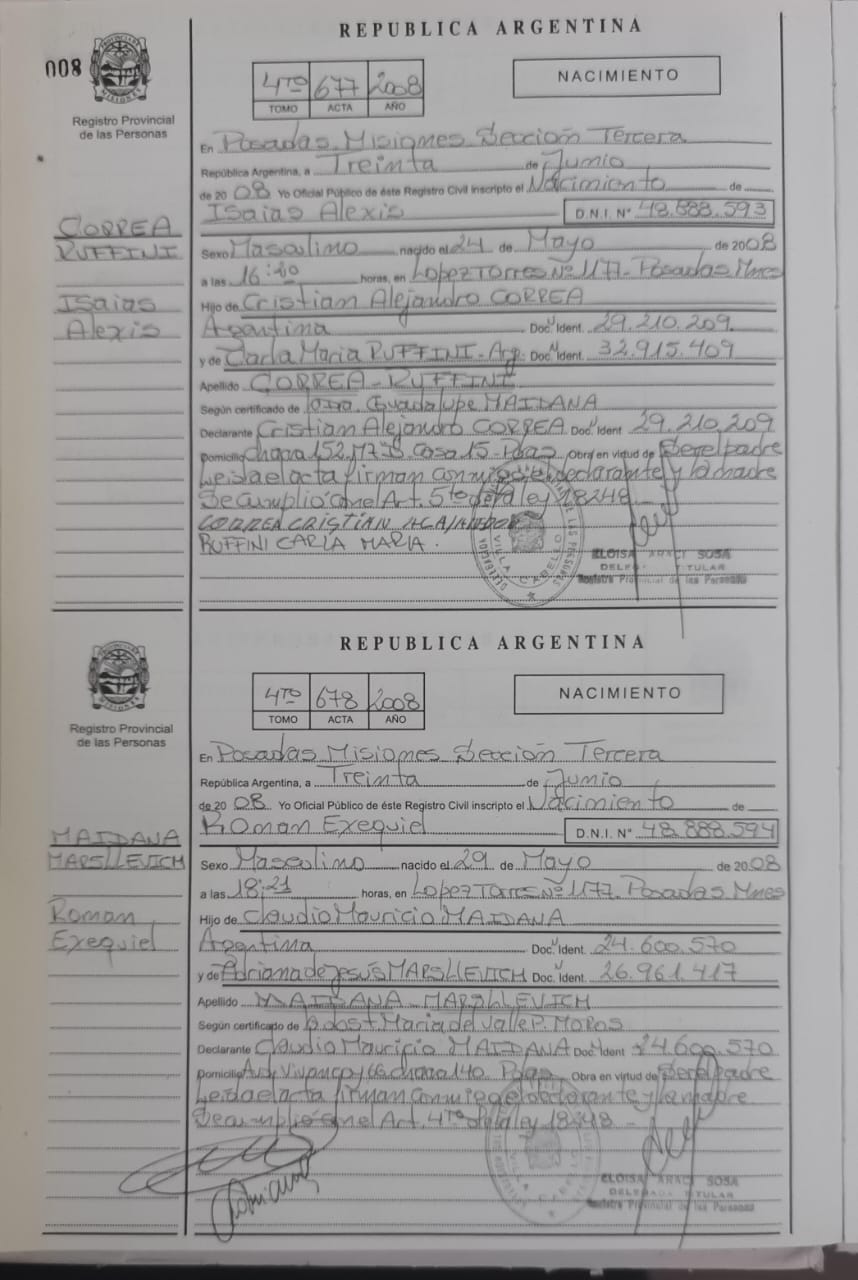 008
PROVINCIA DE MISIONES
Registro Provincial
de las Personas
REPUBLICA ARGENTINA
4TO 677 2008
TOMO ACTA AÑO
NACIMIENTO
CORREA
RUFFINI
Isaias
Alexis
En Posadas Misiones Sección Tercera
República Argentina, a Treinta de Junio
de 20 08 Yo Oficial Público de éste Registro Civil inscripto el Nacimiento de
Isaias Alexis D.N.I. N° 48.888.593
Sexo Masculino nacido el 24 de Mayo de 2008
a las horas, en Lopez Torres Nº 1177 - Posadas Mnes
Hijo de Cristian Alejandro CORREA
Argentina Doc. Ident. 29.210.209
y de Carla Maria RUFFINI - Arg. Doc. Ident. 32.915.409
Apellido CORREA - RUFFINI
Según certificado de Guadalupe MAIDANA
Declarante Cristian Alejandro CORREA Doc. Ident 29.210.209
Domicilio Chapa 152 Casa 15 - Pdas Obra en virtud de Ser el padre
Leída el acta firman conmigo el declarante y la madre
Se cumplió con el Art. 5to de la ley 18248 -
CORREA CRISTIAN
RUFFINI CARLA MARIA.
VILLA CABELLO
ELOISA ARACI SOSA
DELEGADA TITULAR
Registro Provincial de las Personas
PROVINCIA DE MISIONES
Registro Provincial
de las Personas
REPUBLICA ARGENTINA
4TO 678 2008
TOMO ACTA AÑO
NACIMIENTO
MAIDANA
MARSLLEVICH
Roman
Exequiel
En Posadas Misiones Sección Tercera
República Argentina, a Treinta de Junio
de 20 08 Yo Oficial Público de éste Registro Civil inscripto el Nacimiento de
Roman Exequiel D.N.I. N° 48.888.594
Sexo Masculino nacido el 29 de Mayo de 2008
a las 18:21 horas, en Lopez Torres Nº 1177. Posadas Mnes
Hijo de Claudio Mauricio MAIDANA
Argentina Doc. Ident. 24.600.570
y de Adriana de Jesús MARSLLEVICH Doc. Ident. 26.961.417
Apellido MAIDANA MARSLLEVICH
Según certificado de Obst. Maria del Valle P. MOROS
Declarante Claudio Mauricio MAIDANA Doc. Ident 24.600.570
Domicilio Av. Vivanco y 66 chapa 140 Pdas Obra en virtud de Ser el padre
Leída el acta firman conmigo el declarante y la madre
Se cumplió con el Art. 4to de la ley 18248 -
VILLA CABELLO
ELOISA ARACI SOSA
DELEGADA TITULAR
Registro Provincial de las Personas